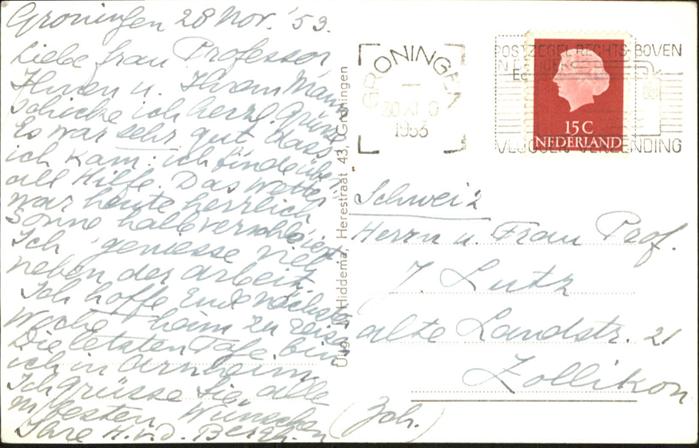 Groningen 28 Nov. '53.
Liebe frau Professor
Ihnen u. Ihrem Mann
schicke ich herzl. Grüsse
Es war sehr gut dass
ich kam: ich finde
all Hilfe. Das Wetter
war heute herrlich
Sonne
Ich geniesse viel
neben der arbeit
Ich hoffe Ende nächste
Woche heim zu reisen
Die letzten Tage bin
ich in Arnheim.
Ich grüsse Sie, alle
m. besten Wünschen
Ihre H. v. d. Bergh.
Hiddema, Herestraat 43, Groningen
GRONINGEN
1953
POSTZEGEL RECHTS BOVEN
VERZENDING
15 C
NEDERLAND
Schweiz
Herrn u. Frau Prof.
J. Lutz
alte Landstr. 21
Zollikon
(Zch.)